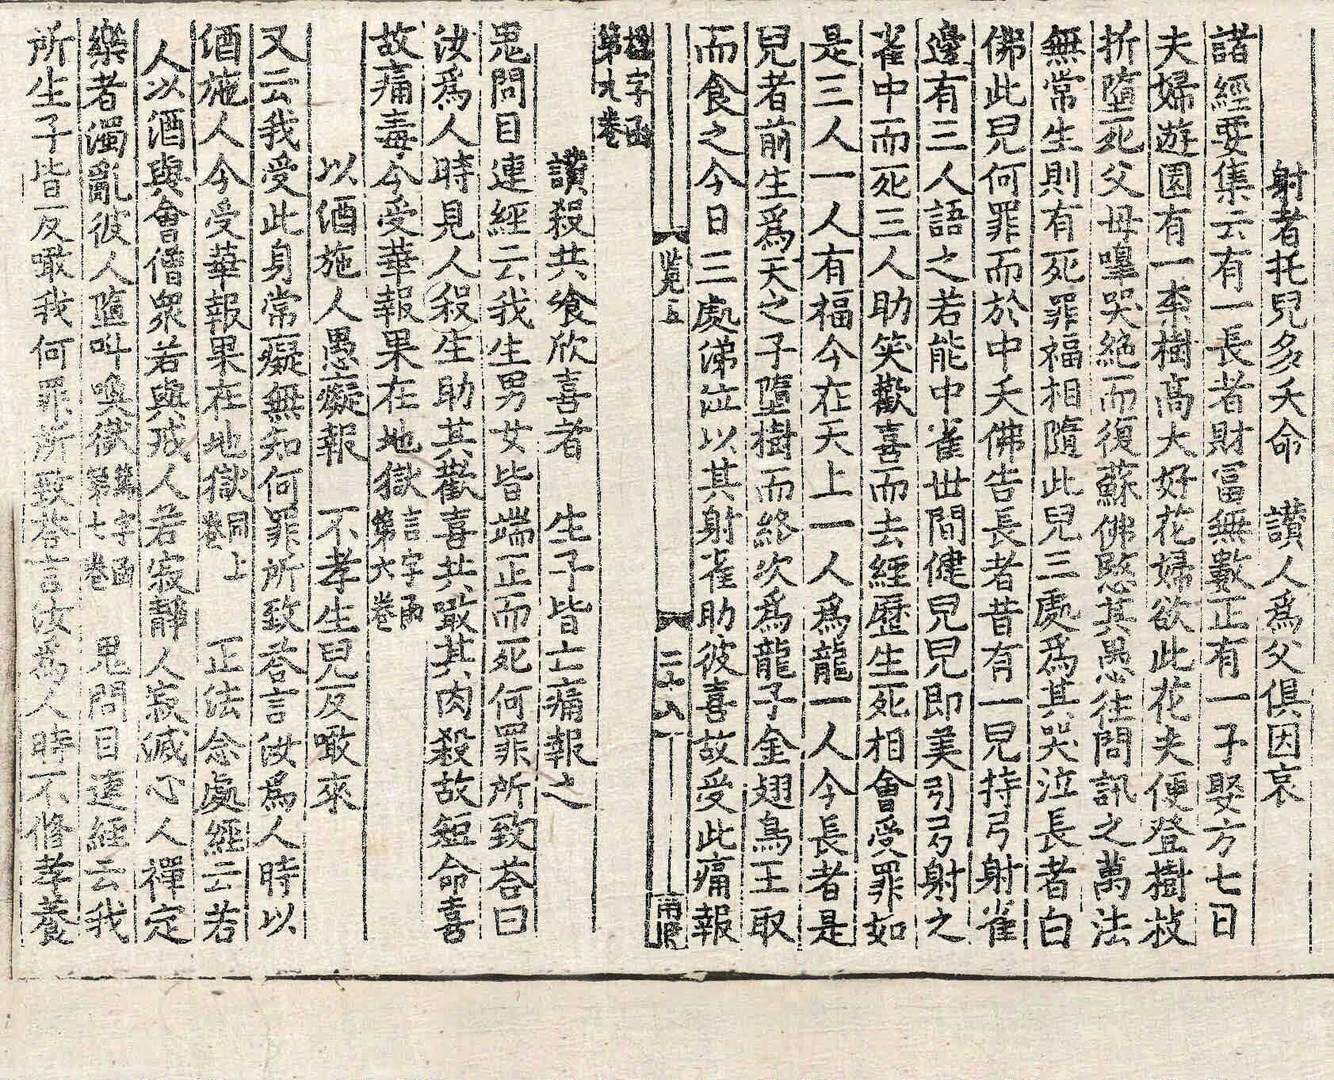 射者托兒多夭命　讃人爲父俱因哀
諸經要集云有一長者財冨無數正有一子娶方七日
夫婦遊園有一李樹高大好花婦欲此花夫便登樹枝
折墮死父母嘷哭絶而復蘇佛愍其愚往問訊之萬法
無常生則有死罪福相隨此兒三處爲其哭泣長者白
佛此兒何罪而於中夭佛告長者昔有一兒持弓射雀
邊有三人語之若能中雀世間健兒兒即美引弓射之
雀中而死三人助笑歡喜而去經歷生死相會受罪如
是三人一人有福今在天上一人爲龍一人今長者是
兒者前生爲天之子墮樹而終次爲龍子金翅鳥王取
而食之今日三處涕泣以其射雀助彼喜故受此痛報
覽五　二十八
字函
第九卷
讃殺共飡欣喜者　生子皆亡痛報之
鬼問目連經云我生男女皆端正而死何罪所致荅曰
汝爲人時見人殺生助其歡喜共噉其肉殺故短命喜
故痛毒今受華報果在地獄言字函第六卷
以酒施人愚癡報　不孝生兒反噉來
又云我受此身常癡無知何罪所致荅言汝爲人時以
酒施人今受華報果在地獄同上卷　正法念處經云若
人以酒與會僧衆若與戒人若寂靜人寂滅心人禪定
樂者濁亂彼人墮叫喚獄字函第七卷　鬼問目連經云我
所生子皆反噉我何罪所致荅言汝爲人時不修孝養